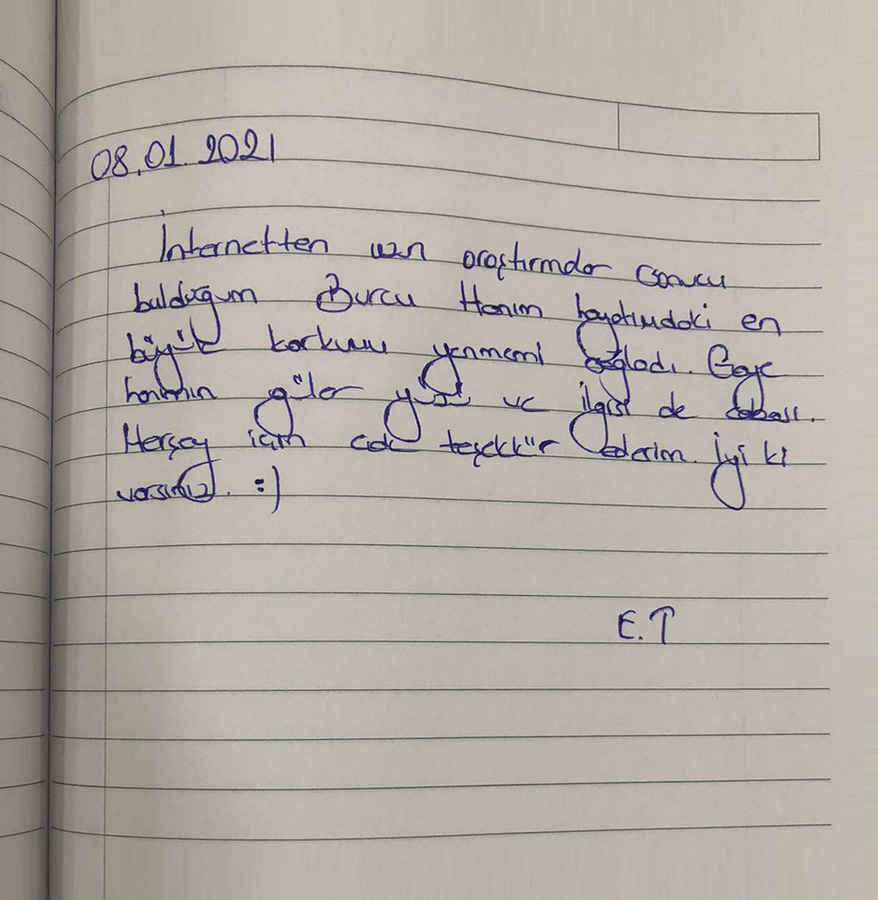 08.01.2021
İnternetten uzun araştırmalar sonucu
bulduğum Burcu Hanım hayatımdaki en
büyük korkumu yenmemi sağladı. Gaye
hanımın güler yüzü ve ilgisi de cabası.
Herşey için çok teşekkür ederim. İyi ki
varsınız. :)
E.T